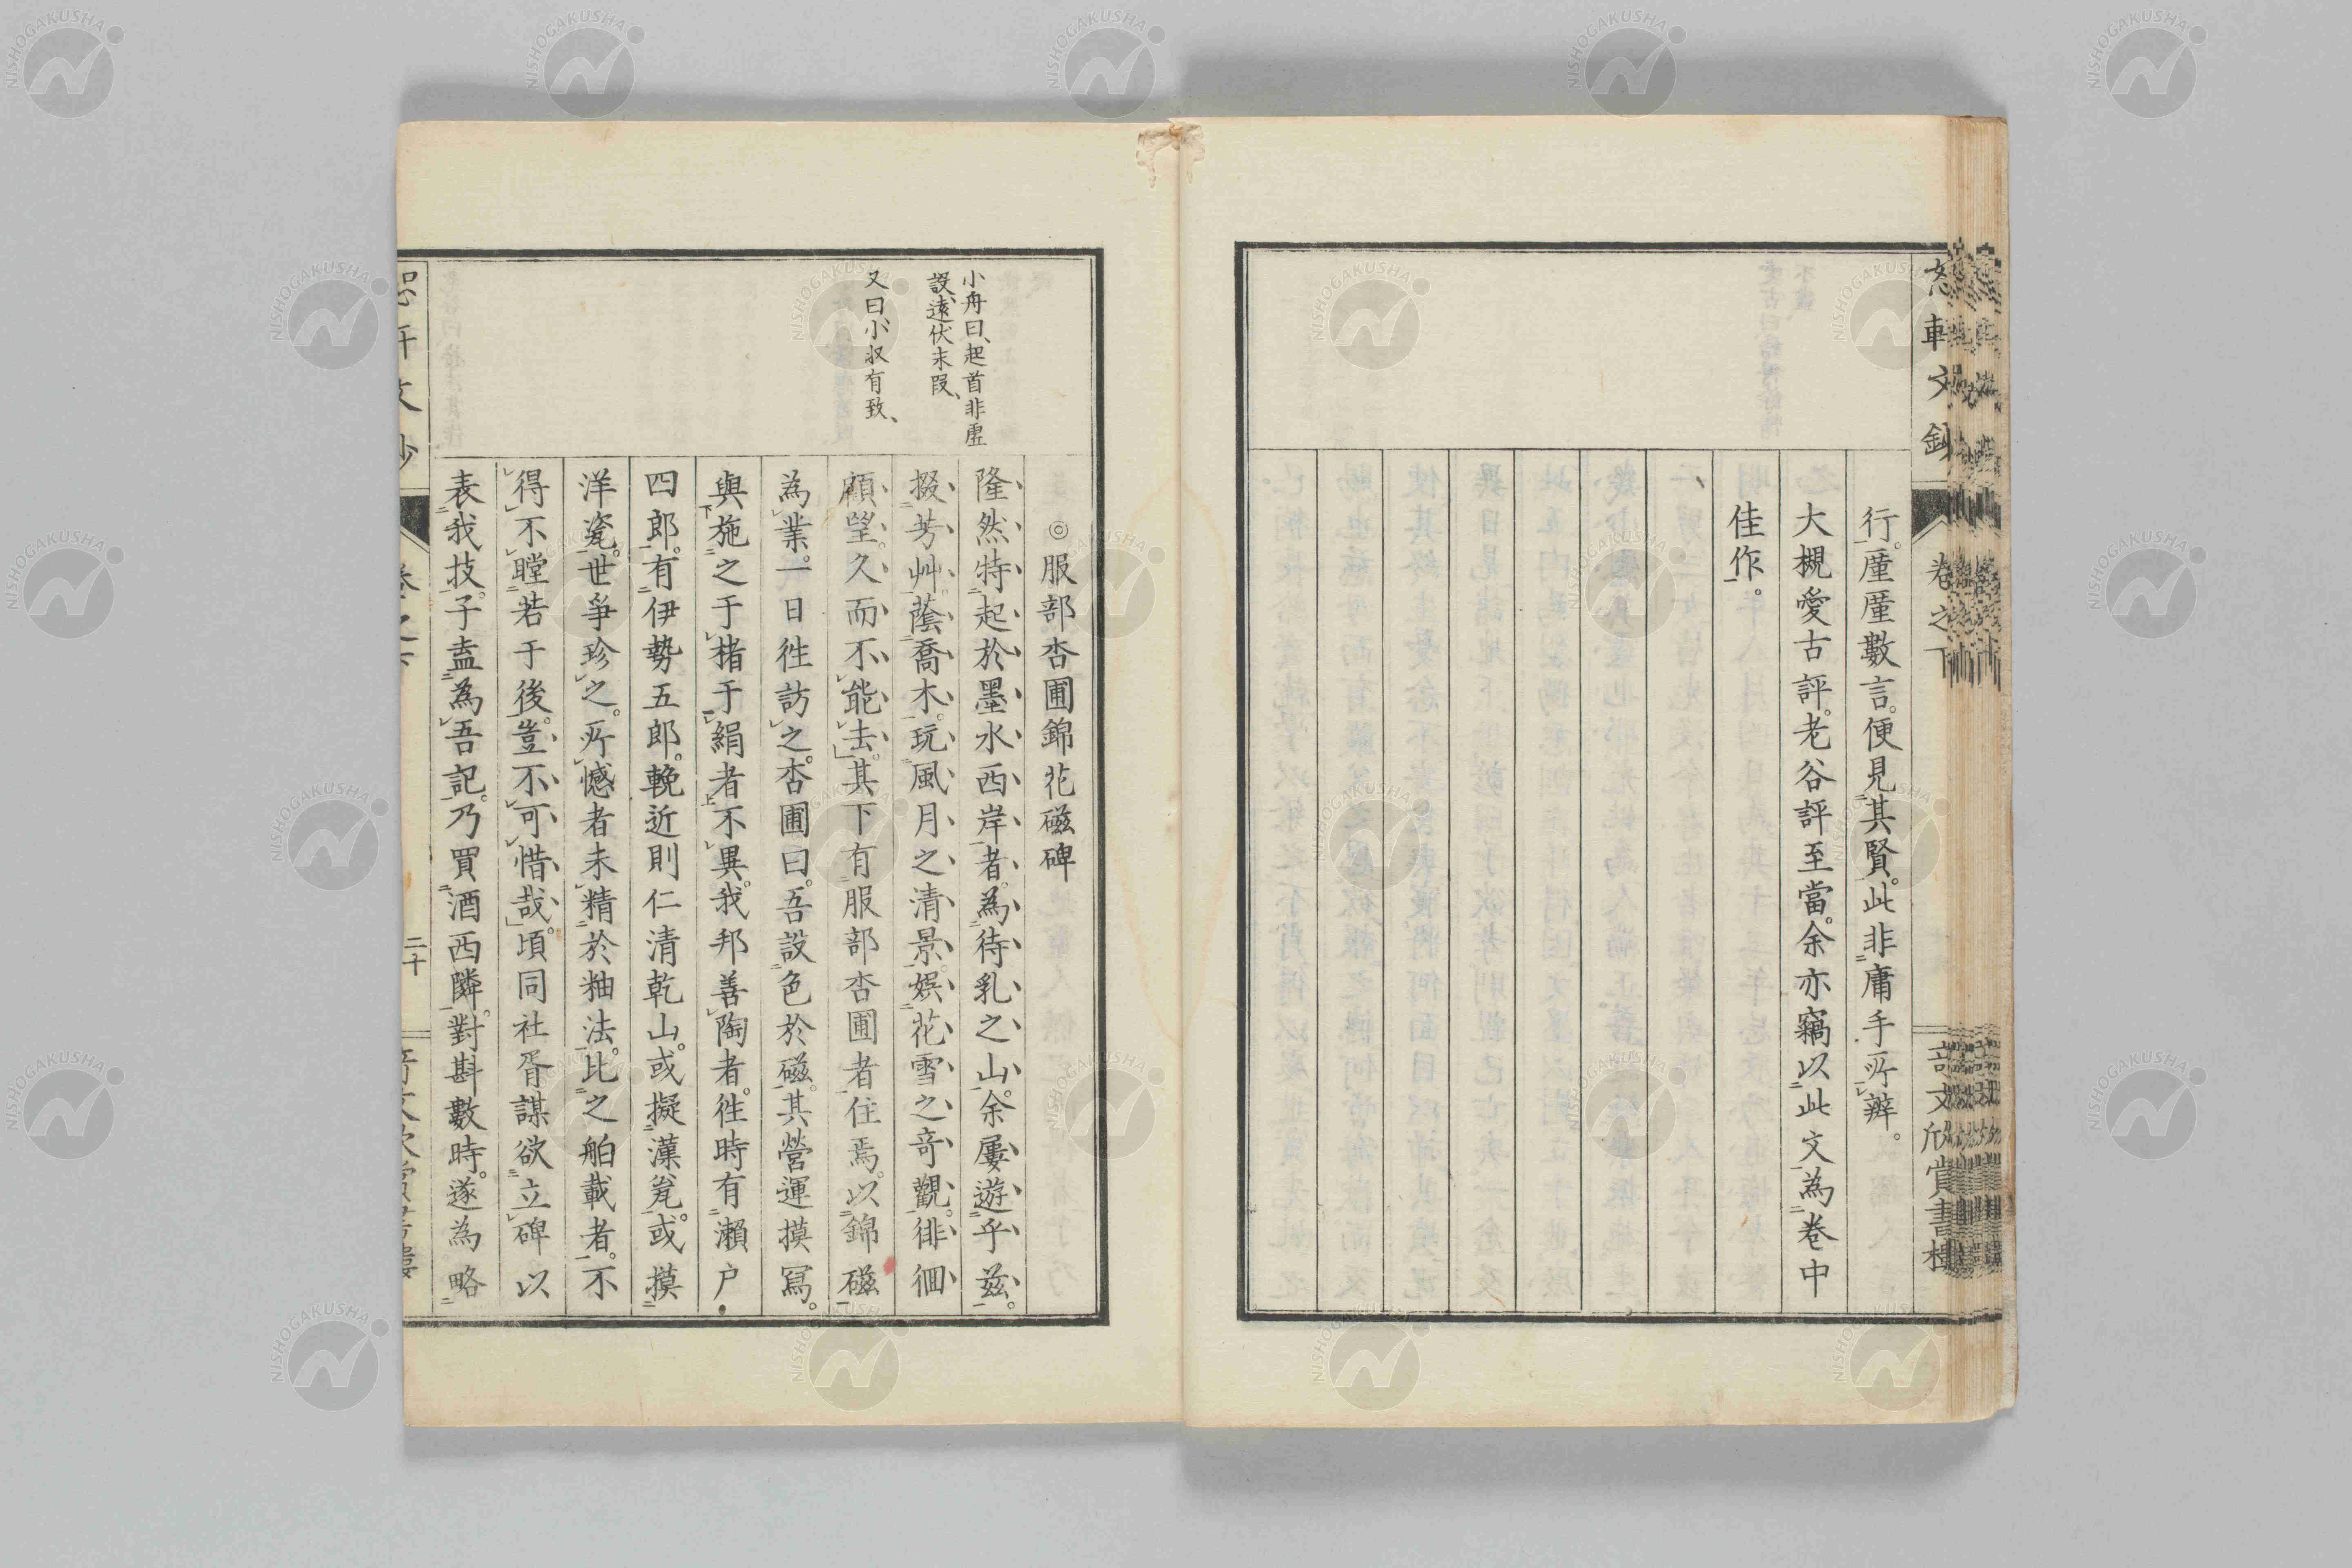 恕軒文鈔
卷之下
奇文欣賞書樓
行。廑廑數言。便見其賢。此非庸手所辨。
大槻愛古評。老谷評至當。余亦竊以此文為卷中
佳作。
小舟曰、起首非虛
設、遠伏末段、
又曰、小収有致、
◎服部杏圃錦花磁碑
隆然特起於墨水西岸者。為待乳之山。余屢遊乎茲。
掇芳艸。蔭喬木。玩風月之清景。娯花雪之竒觀。徘徊
顧望。久而不能去。其下有服部杏圃者。住焉。以錦磁
為業。一日徃訪之。杏圃曰。吾設色於磁。其營運摸冩。
與施之于楮于絹者不異。我邦善陶者。徃時有瀨戸
四郎。有伊勢五郎。輓近則仁清乾山。或擬漢瓮。或摸
洋瓷。世爭珍之。所憾者未精於釉法。比之舶載者。不
得不瞠若于後。豈不可惜哉。頃同社胥謀欲立碑以
表我技。子盍為吾記。乃買酒西隣。對斟數時。遂為略
二十